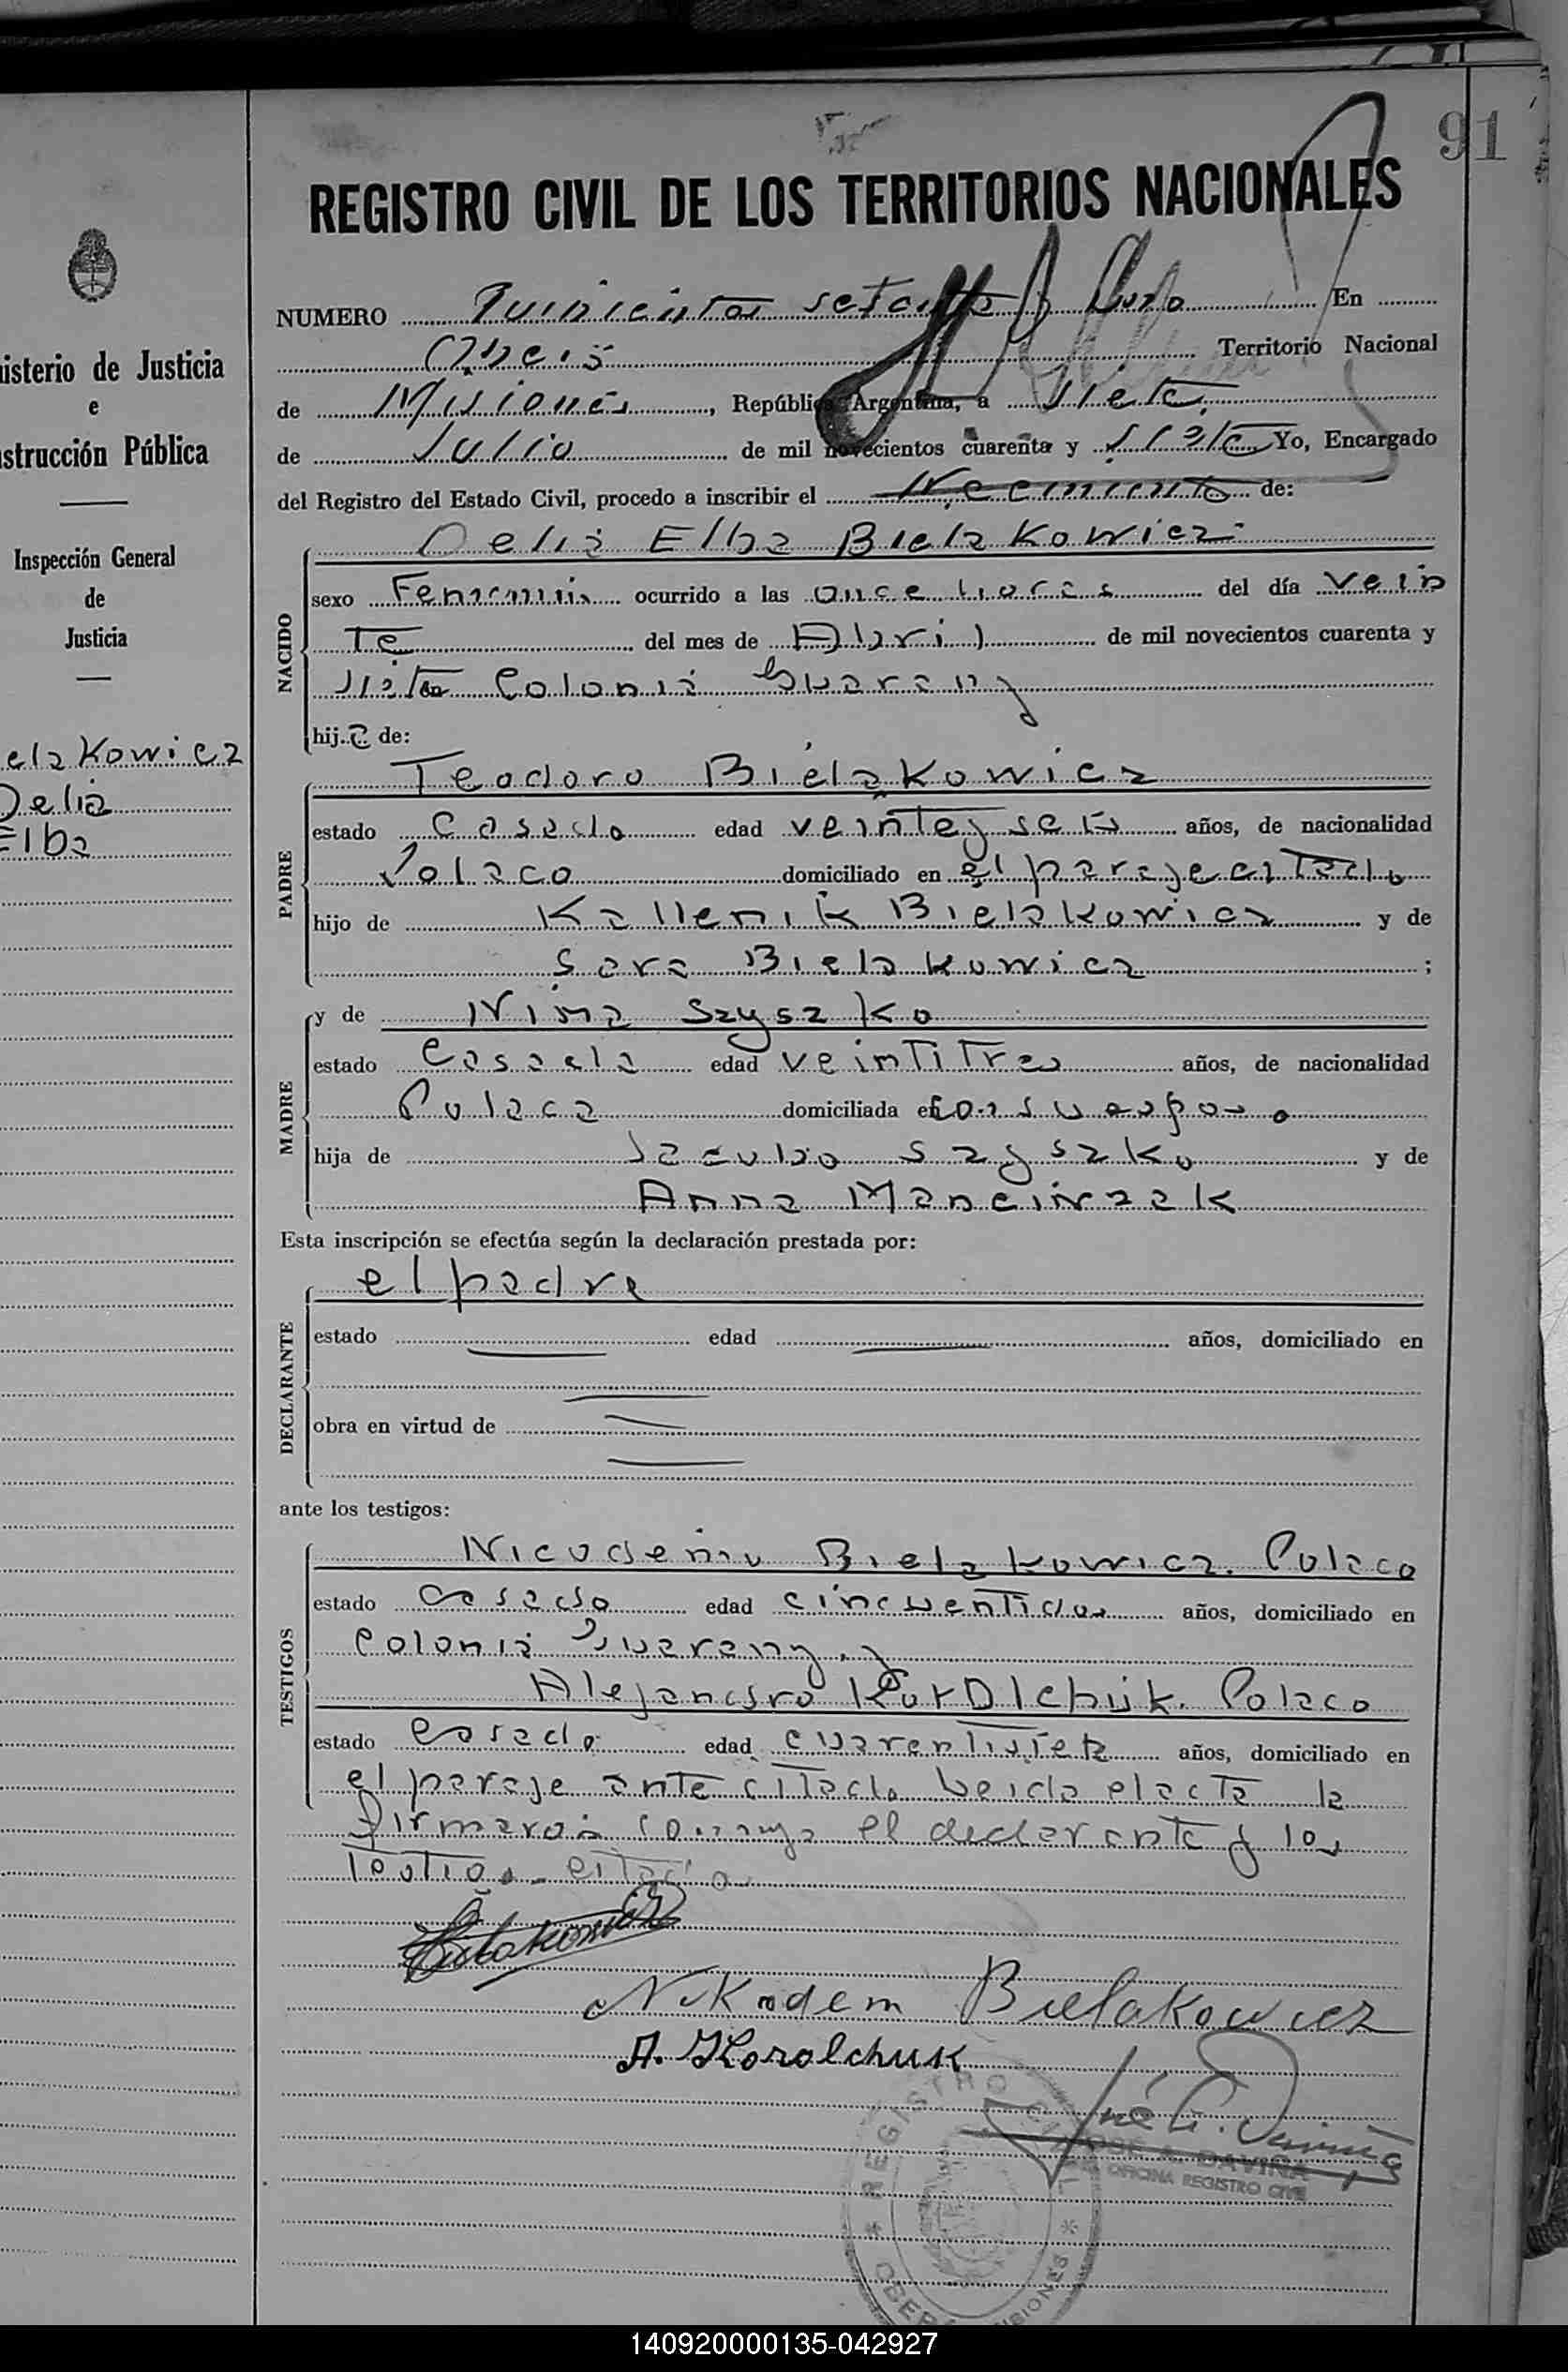 91
REGISTRO CIVIL DE LOS TERRITORIOS NACIONALES
NUMERO Quinientos setenta y uno En
Oberá Territorio Nacional
de Misiones, República Argentina, a siete
de Julio de mil novecientos cuarenta y siete Yo, Encargado
del Registro del Estado Civil, procedo a inscribir el Nacimiento de:
NACIDO
Delia Elba Bielakowicz
sexo Femenino ocurrido a las once horas del día vein
te del mes de Abril de mil novecientos cuarenta y
siete en Colonia Guarany
hija de:
PADRE
Teodoro Bielakowicz
estado casado edad veinteyseis años, de nacionalidad
Polaco domiciliado en el paraje citado
hijo de Kallenik Bielakowicz y de
Sara Bielakowicz ;
MADRE
y de Nina Szyszko
estado Casada edad veintitres años, de nacionalidad
Polaca domiciliada en con su esposo
hija de Jacobo Szyszko y de
Anna
Esta inscripción se efectúa según la declaración prestada por:
DECLARANTE
el padre
estado edad años, domiciliado en
obra en virtud de
ante los testigos:
TESTIGOS
Nicodemo Bielakowicz. Polaco
estado casado edad cincuentidos años, domiciliado en
Colonia Guarany, y
Alejandro Korolchuk. Polaco
estado casado edad cuarentisiete años, domiciliado en
el paraje ante citado leida el acta la
firmaron conmigo el declarante y los
testigos citados
Bielakowicz
Nikodem Bielakowicz
A. Korolchuk
José A. Daviña
JOSE A. DAVIÑA
OFICINA REGISTRO CIVIL
REGISTRO CIVIL
MISIONES
isterio de Justicia
e
strucción Pública
Inspección General
de
Justicia
elakowicz
Delia
Elba
140920000135-042927